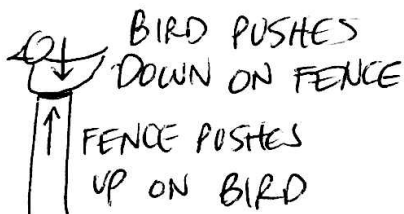 BIRD PUSHES
DOWN ON FENCE
FENCE PUSHES
UP ON BIRD